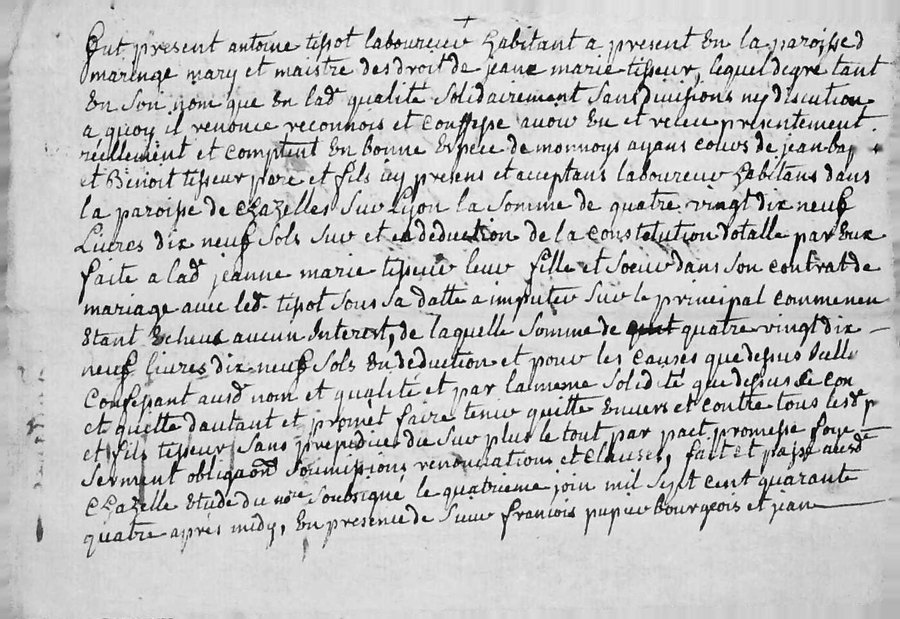 +
Fut present antoine tissot laboureur habitant a present En la paroisse d
maringe mary et maistre des droit de jeane marie tisseur, lequel de gre tant
En son nom que En lad qualité solidairement sans divisions ny discution
a quoy il renonce reconnois et confesse avoir Eu et receu presentement
réellement et comptent En bonne Espece de monnoys ayans cours de jean bap
et Benoit tisseur pere et fils icy presens et acceptans laboureur habitans dans
la paroisse de chazelles sur Lyon la somme de quatre vingt dix neuf
Livres dix neuf sols sur et En deduction de la constitution dotalle par Eux
faite a lad jeanne marie tisseur leur fille et soeur dans son contrat de
mariage avec led tissot sous sa datte a imputer sur le principal comme nen
Etant Echeus aucun Interest, de laquelle somme de quatre vingt dix
neuf livres dix neuf sols En deduction et pour les causes que dessus
Confessant ausd nom et qualité et par la meme solidité que dessus se con
et quitte dautant et promet faire tenir quitte Envers et contre tous lesd p
et fils tisseur sans prejudice du sur plus le tout par pact promesse foye
serment obligaons soumissions renonciations et clauses, fait et passé aud
chazelle Etude du nore soubsigné le quatrieme join mil sept cent quarante
quatre après midy, En presence de sieur francois pupier Bourgeois et jean